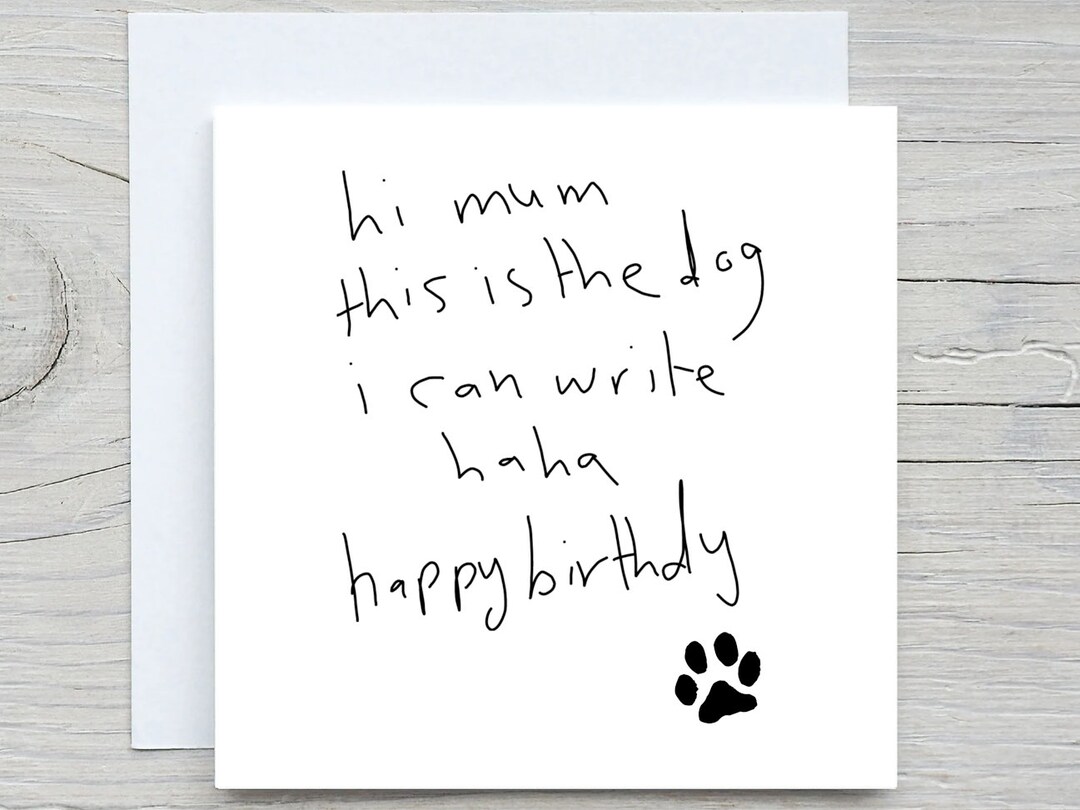 hi mum
this is the dog
i can write
haha
happy birthdy